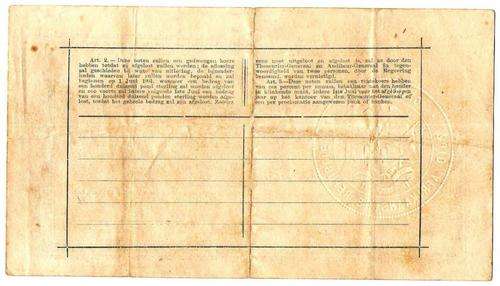 Art. 2.—Deze noten zullen een gedwongen koers
hebben totdat ze afgelost zullen worden; de aflossing
zal geschieden bij wijze van uitloting, de bijzonder-
heden waarvan later zullen worden bepaald en zal
beginnen op 1 Juni 1901, wanneer een bedrag van
een honderd duizend pond sterling zal worden afgelost
en zoo voorts zal iedere volgende 1ste Juni een bedrag
van een honderd duizend ponden sterling worden afge-
lost, totdat het geheele bedrag zal zijn afgelost. Zoodra
eene noot uitgeloot en afgelost is, zal ze door den
Thesaurier-Generaal en Auditeur-Generaal in tegen-
woordigheid van twee personen, door de Regeering
benoemd, worden vernietigd.
Art. 3.—Deze noten zullen een rentekoers hebben
van zes percent per annum, betaalbaar aan den houder
in klinkende munt, iedere 1ste Juni
jaar op het kantoor van den Thesaurier-Generaal of
een per proclamatie aangewezen bank of banken.